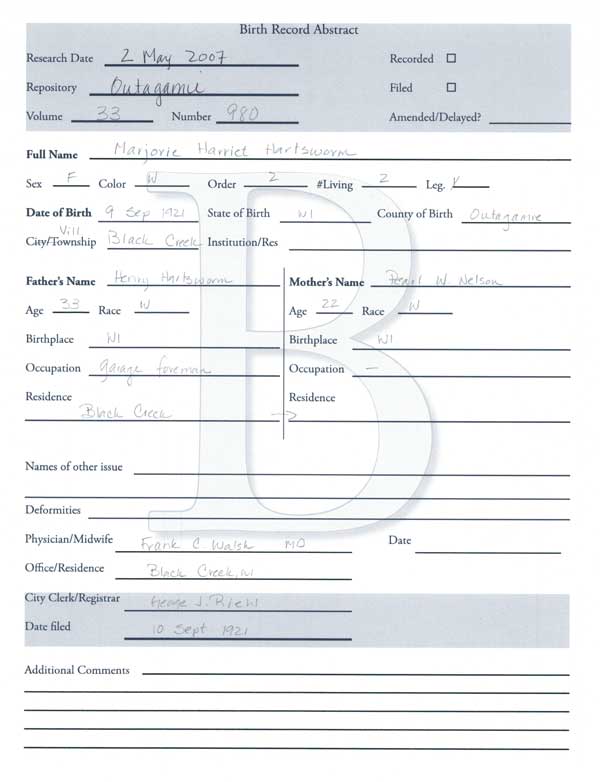 Birth Record Abstract
Research Date 2 May 2007 Recorded ☐
Repository Outagamie Filed ☐
Volume 33 Number 980 Amended/Delayed?
Full Name Marjorie Harriet Hartsworm
Sex F Color W Order 2 #Living 2 Leg. Y
Date of Birth 9 Sep 1921 State of Birth WI County of Birth Outagamie
Vill
City/Township Black Creek Institution/Res
Father's Name Henry Hartsworm Mother's Name Pearl W. Nelson
Age 33 Race W Age 22 Race W
Birthplace WI Birthplace WI
Occupation garage foreman Occupation —
Residence Residence
Black Creek →
Names of other issue
Deformities
Physician/Midwife Frank C Walsh MD Date
Office/Residence Black Creek, WI
City Clerk/Registrar George J.
Date filed 10 Sept 1921
Additional Comments
B